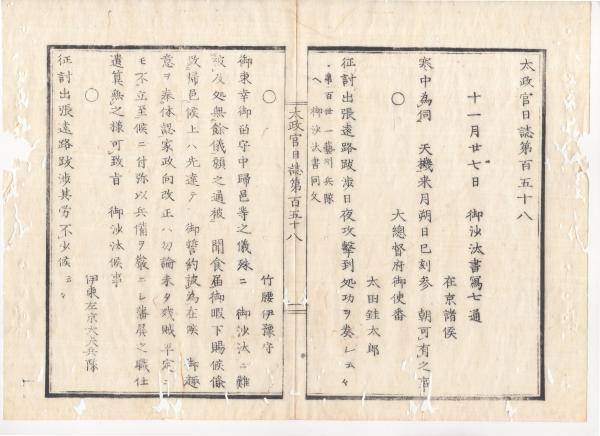 太政官日誌第百五十八
十一月廿七日　御沙汰書写七通
在京諸侯
寒中為伺　天機来月朔日巳刻参　朝可有之事
○
大總督府御使番
太田鈺太郎
征討出張遠路跋渉日夜攻撃到処功ヲ奏し云々
第百廿一藝州兵隊
へ　御沙汰書同文
太政官日誌第百五十八
○
竹腰伊豫守
御東幸御留守中歸邑等之儀殊ニ　御沙汰ニ難
被及処無餘儀願之通被　聞食届御暇下賜候條
致歸邑候上ハ先達テ　御誓約被為在候　御趣
意ヲ奉体認家政向改正ハ勿論未タ残賊平定ニ
モ不立至候ニ付弥以兵備ヲ厳ニし藩屏之職任
遺算無之様可致旨　御沙汰候事
○
伊東左京大夫兵隊
征討出張遠路跋渉其労不少候云々